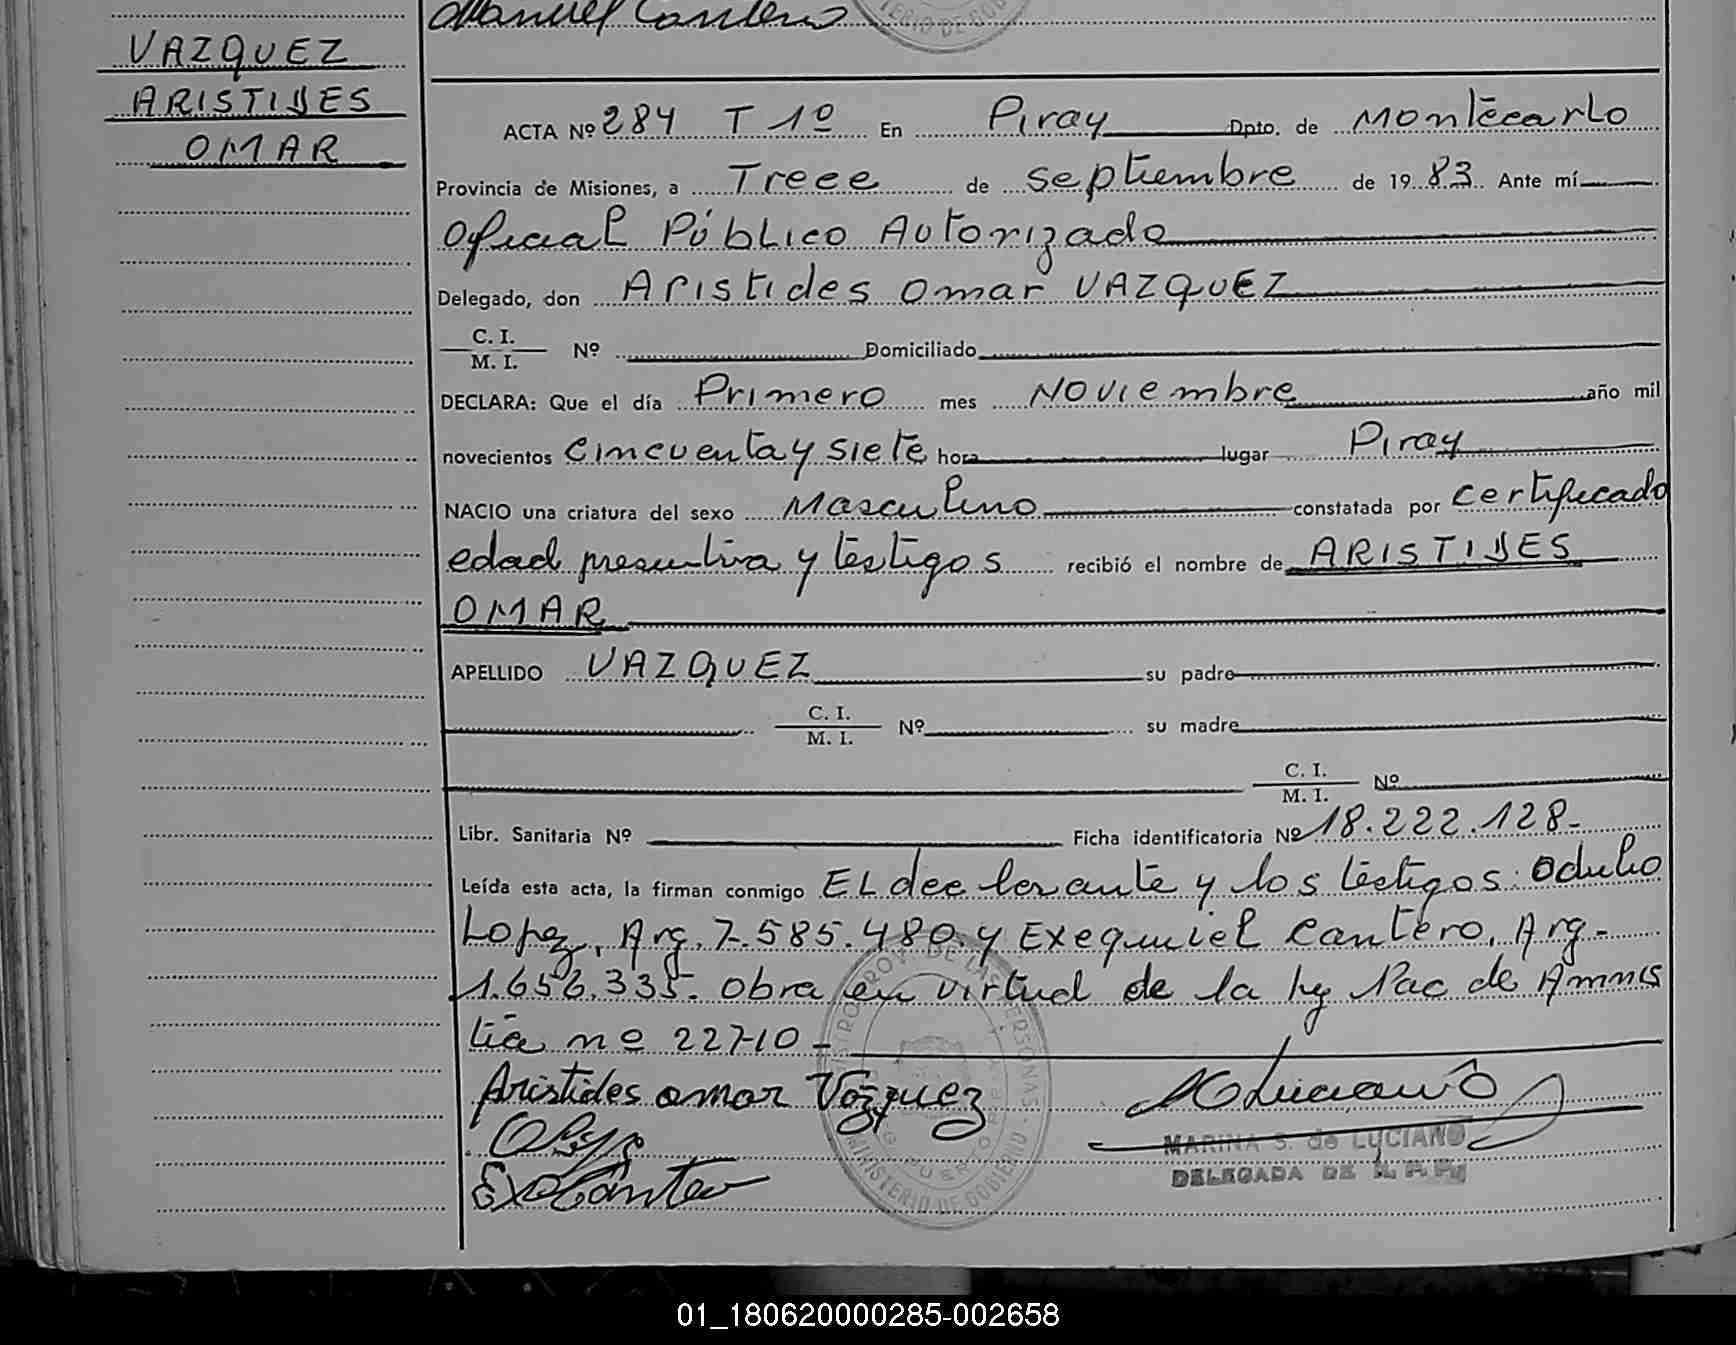 Manuel Cantero
VAZQUEZ
ARISTIDES
OMAR
ACTA Nº 284 T 1º En Piray Dpto. de Montecarlo
Provincia de Misiones, a Trece de septiembre de 1983. Ante mí
Oficial Público Autorizado
Delegado, don Aristides Omar VAZQUEZ
C. I.
M. I. Nº Domiciliado
DECLARA: Que el día Primero mes Noviembre año mil
novecientos cincuenta y siete hora lugar Piray
NACIO una criatura del sexo Masculino constatada por certificado
edad presuntiva y testigos recibió el nombre de ARISTIDES
OMAR
APELLIDO VAZQUEZ su padre
C. I.
M. I. Nº su madre
C. I.
M. I. Nº
Libr. Sanitaria Nº Ficha identificatoria Nº 18.222.128-
Leída esta acta, la firman conmigo El declarante y los testigos: Odulio
Lopez, Arg. 7.585.480. y Exequiel Cantero, Arg-
1.656.335. Obra en virtud de la ley Nac de Amnis
tia nº 22710-
Aristides Omar Vázquez
MARINA S. de LUCIANO
DELEGADA DE R. P. P.
MINISTERIO DE GOBIERNO
01_180620000285-002658